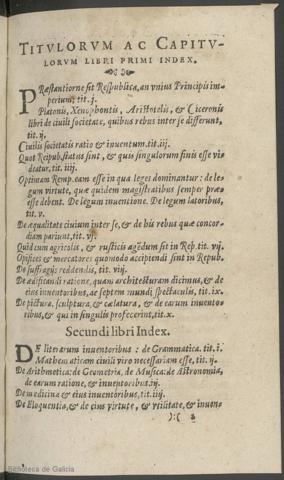 TITVLORVM AC CAPITV-
LORVM LIBRI PRIMI INDEX.
PRæstantiorne sit Respublica, an vnius Principis im-
perium, tit. j.
Platonis, Xenophontis, Aristotelis, & Ciceronis
libri de ciuili societate, quibus rebus inter se differunt,
tit. ij.
Ciuilis societatis ratio & inuentum. tit. iij.
Quot Reipub. status sint, & quis singulorum finis esse vi-
deatur, tit. iiij.
Optimam Remp. eam esse in qua leges dominantur: de le-
gum virtute, quæ quidem magistratibus semper præo
esse debent. De legum inuentione. De legum latoribus,
tit. v.
De æqualitate ciuium inter se, & de his rebus quæ concor-
diam pariunt, tit. vj.
Quid cum agricolis, & rusticis agēdum sit in Rep. tit. vij.
Opifices & mercatores quomodo accipiendi sint in Repub.
De suffragijs reddendis, tit. viij.
De ædificandi ratione, quam architecturam dicimus, & de
eius inuentoribus, ac septem mundi spectaculis, tit. ix.
De pictura, sculptura, & cælatura, & de earum inuento-
ribus, & qui in singulis profecerint, tit. x.
Secundi libri Index.
DE literarum inuentoribus: de Grammatica. tit. i.
Mathematicam ciuili viro necessariam esse, tit. ij.
De Arithmetica: de Geometria, de Musica: de Astronomia,
de earum ratione, & inuentoribus. iij.
De medicina & eius inuentoribus, tit. iiij.
De Eloquentia, & de eius virtute, & vtilitate, & inuen-
):(
Biblioteca de Galicia